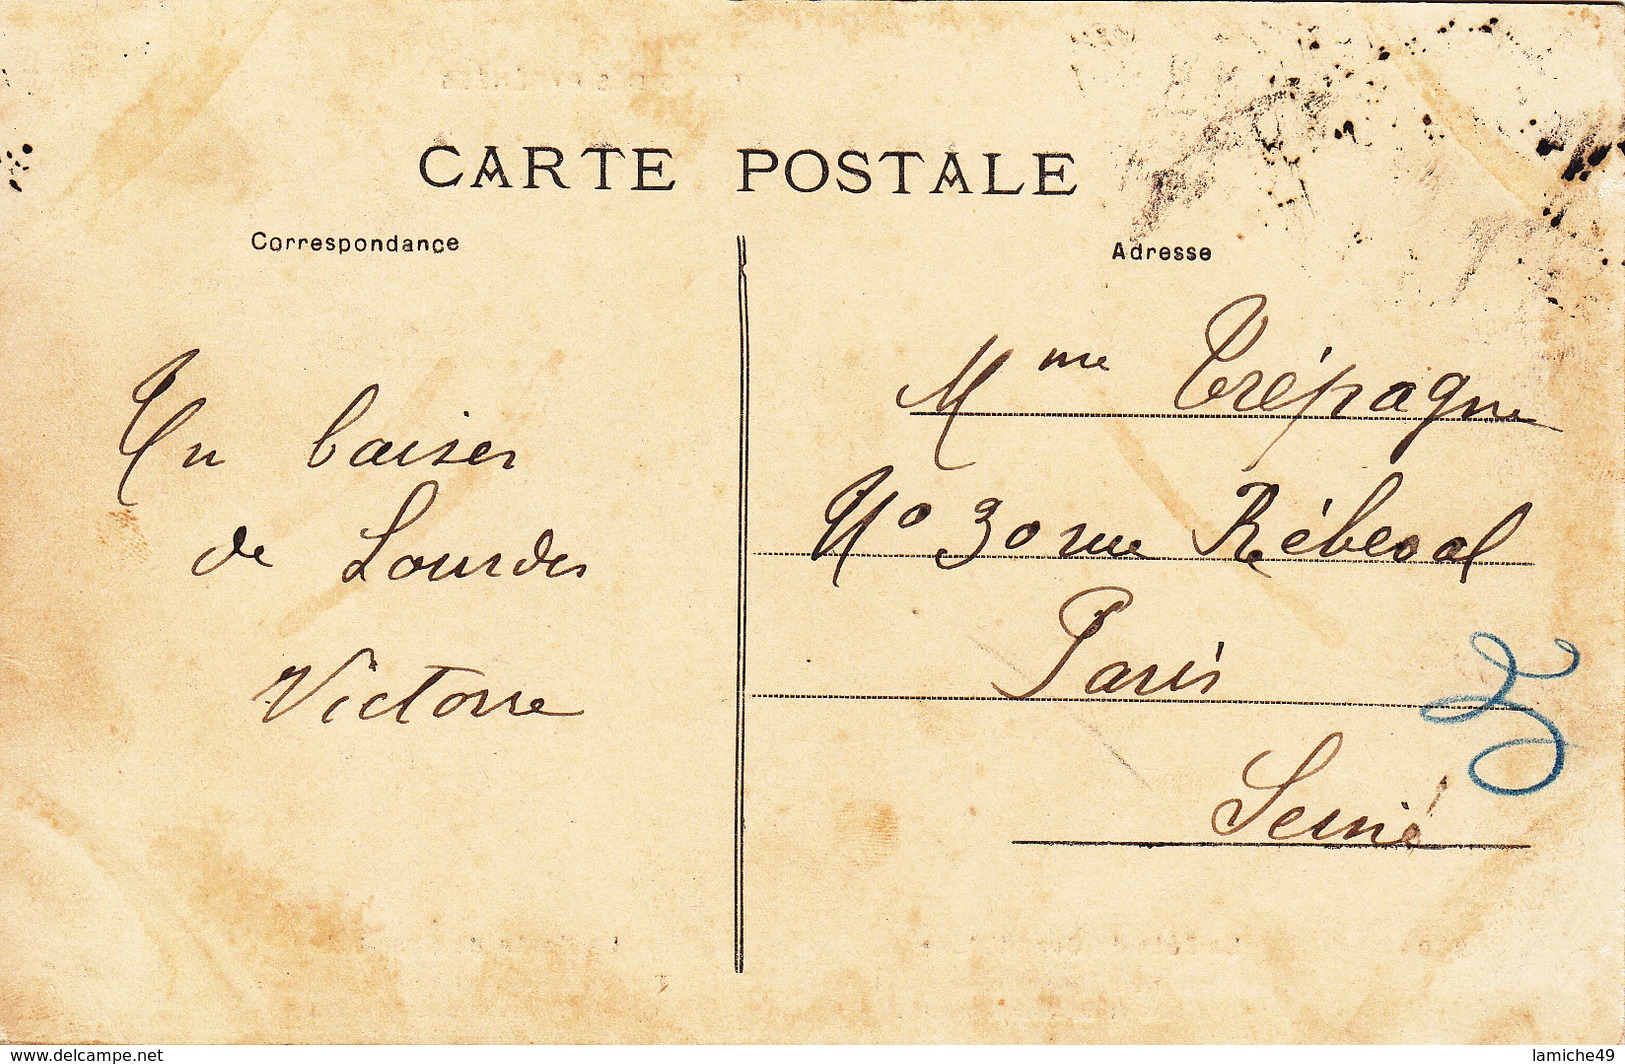 CARTE POSTALE
Correspondance
Adresse
Un baiser
de Lourdes
Victorre
Mme Trépagne
No 30 rue Rébeval
Paris
Seine
www.delcampe.net
lamiche49